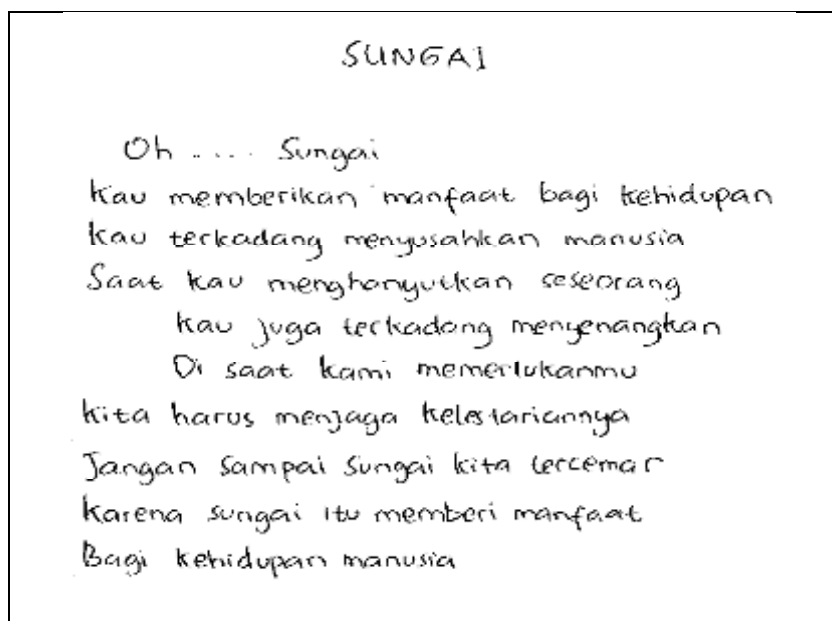 SUNGAI
Oh ..... Sungai
Kau memberikan manfaat bagi kehidupan
Kau terkadang menyusahkan manusia
Saat kau menghanyutkan seseorang
Kau juga terkadang menyenangkan
Di saat kami memerlukanmu
Kita harus menjaga kelestariannya
Jangan sampai sungai kita tercemar
Karena sungai itu memberi manfaat
Bagi kehidupan manusia